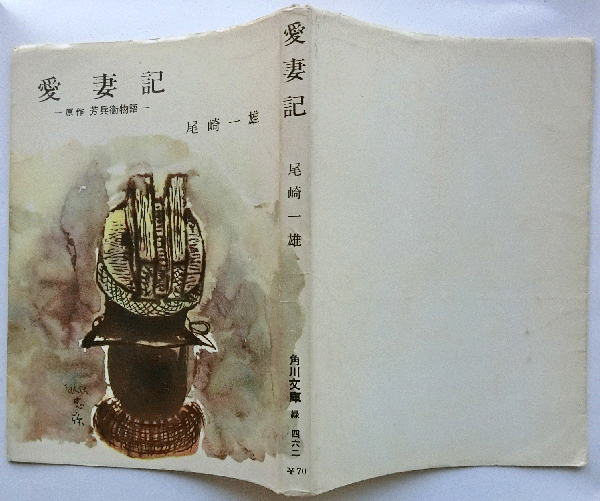 愛妻記
―原作 芳兵衛物語―
尾崎一雄
忠弥
愛妻記
尾崎一雄
角川文庫
緑 四六二
¥70